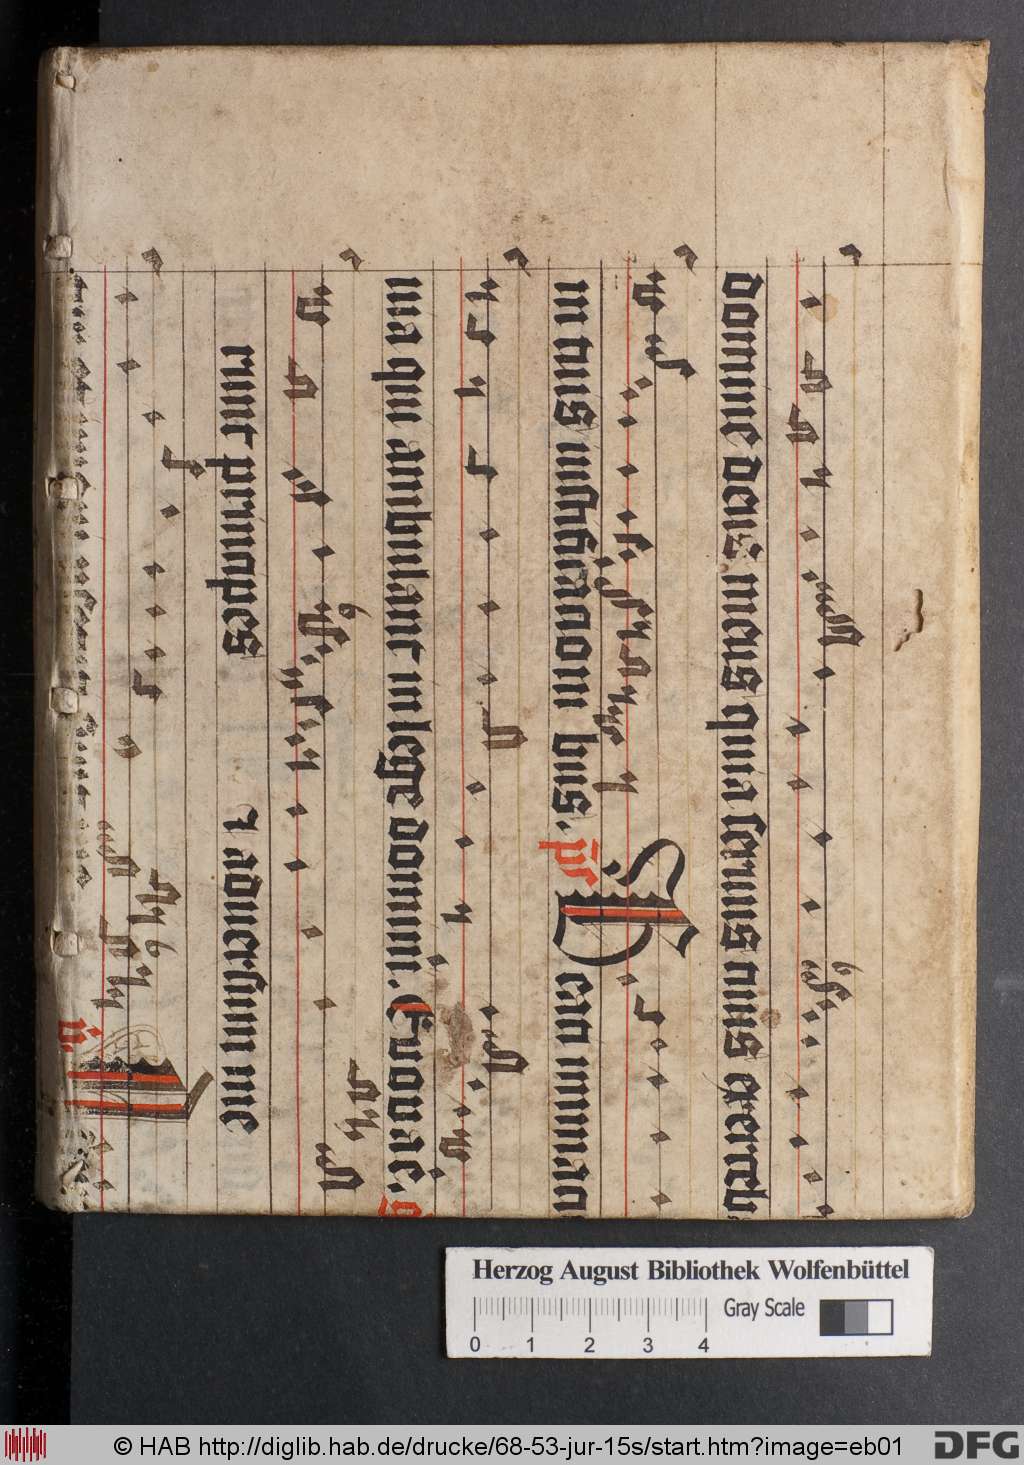 domine deus meus quia seruus tuus exerceb
in tuis iustificacioni bus. ps Beati immac
uia qui ambulant in lege domini. Euouae. g
runt principes ⁊ aduersum me
v.
Herzog August Bibliothek Wolfenbüttel
0 1 2 3 4 Gray Scale
© HAB http://diglib.hab.de/drucke/68-53-jur-15s/start.htm?image=eb01 DFG